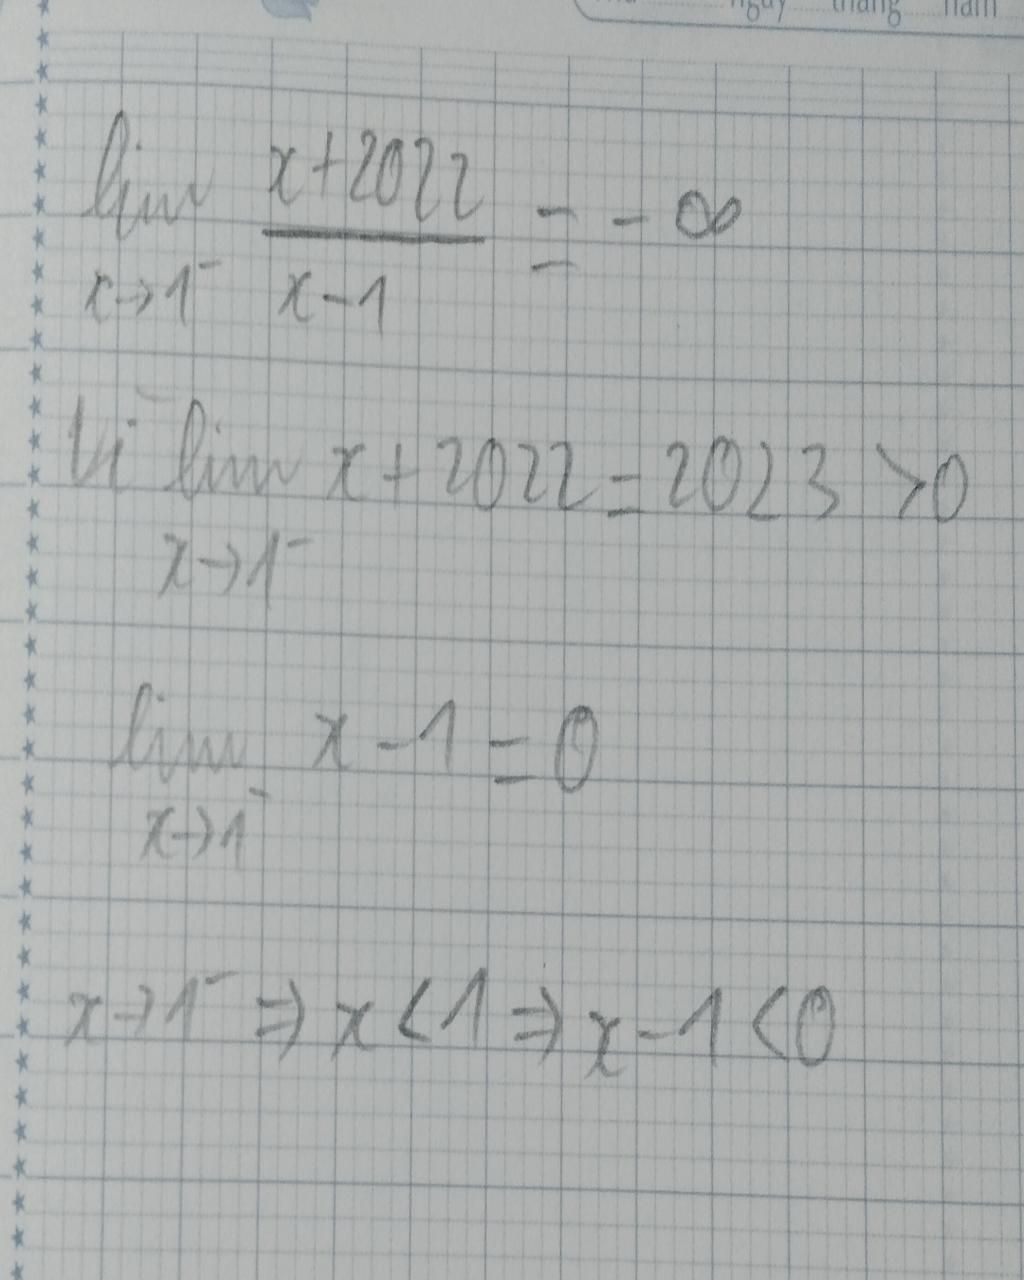 ngày tháng năm
lim x+2022
x→1⁻ x-1 = -∞
Vì lim x+2022=2023 >0
x→1⁻
lim x-1=0
x→1⁻
x→1⁻ ⇒ x<1 ⇒ x-1<0